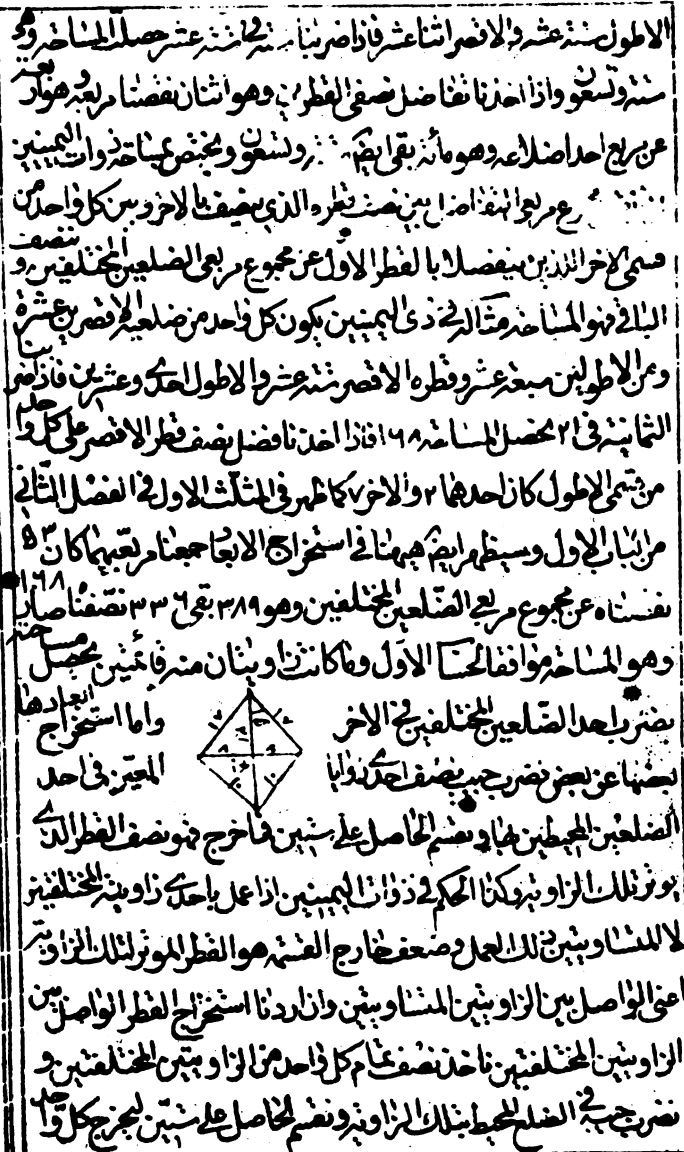 الاطول ستة عشر والاقصر اثنا عشر فاذا ضربنا ستة في ستة عشر حصل المساحة وهو
ستة وتسعون واذا اخذنا تفاضل نصفى القطرين وهو اثنان نقصنا مربعه وهو اربعة
عن مربع احد اضلاعه وهو مائة بقى ايضا وتسعون ويختص بمساحة ذوات اليمينين
مربعى التفاضل بين نصف قطره الذى ينصف بالاخر وبين كل واحد من
قسمى الاخر اللذين ينفصلان بالقطر الاول عن مجموع مربعى الضلعين المختلفين وتنصف
الباقى فهو المساحة مثاله فى ذى اليمينين يكون كل واحد من ضلعيه الاقصرين عشرة
ومن الاطولين سبعة عشر وقطره الاقصر ستة عشر والاطول احدى وعشرين فاذا ضربنا
الثمانية فى ٢١ تحصل المساحة ١٦٨ فاذا اخذنا فضل نصف قطر الاقصر على كل واحد
من قسمى الاطول كان احدهما ٢ والاخر ٧ كما ظهر فى المثلث الاول فى الفصل الثانى
من الباب الاول وسيظهر ايضا ههنا فى استخراج الابعاد جمعنا مربعيهما كان ٥٣
نقصناه عن مجموع مربعى الضلعين المختلفين وهو ٣٨٩ بقى ٣٣٦ نصفناه صار ١٦٨
وهو المساحة موافقا لحسا الاول وما كانت زاويتان منه قائمتين يحصل مساحته
بضرب احد الضلعين المختلفين فى الاخر واما استخراج ابعادها
بعضها عن بعض نضرب جيب نصف احدى زوايا المعين فى احد
الضلعين المحيطين بها ونقسم الحاصل على ستين فما خرج فهو نصف القطر الذى
يوتر تلك الزاوية وكذا الحكم فى ذوات اليمينين اذا عمل باحدى زاويتيه المختلفتين
لا المتساويتين ذلك العمل وضعف خارج القسمة هو القطر الموتر لتلك الزاوية
اعنى الواصل بين الزاويتين المتساويتين وان اردنا استخراج القطر الواصل بين
الزاويتين المختلفتين ناخذ نصف تمام كل واحد من الزاويتين المختلفتين و
نضرب جيبه فى الضلع المحيط بتلك الزاوية ونقسم الحاصل على ستين ليخرج كل واحد